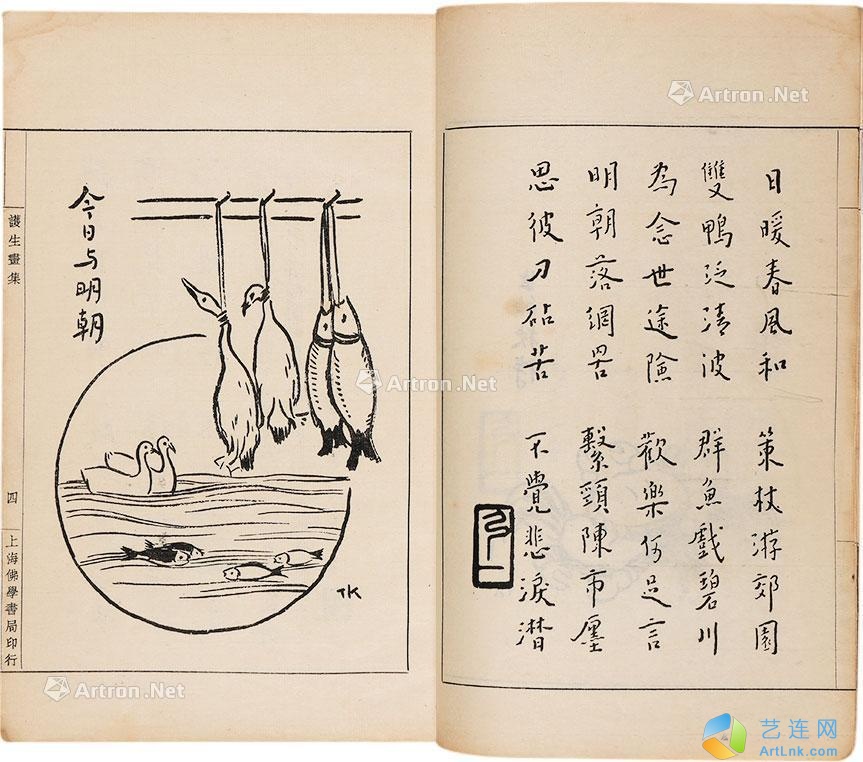 日暖春風和 策杖游郊園
雙鴨泛清波 群魚戲碧川
為念世途險 歡樂何足言
明朝落網罟 繫頸陳市廛
思彼刀砧苦 不覺悲淚潸
今日与明朝
TK
護生畫集
四
上海佛學書局印行
Artron.Net
Artron.Net
Artron.Net
艺连网
ArtLnk.com